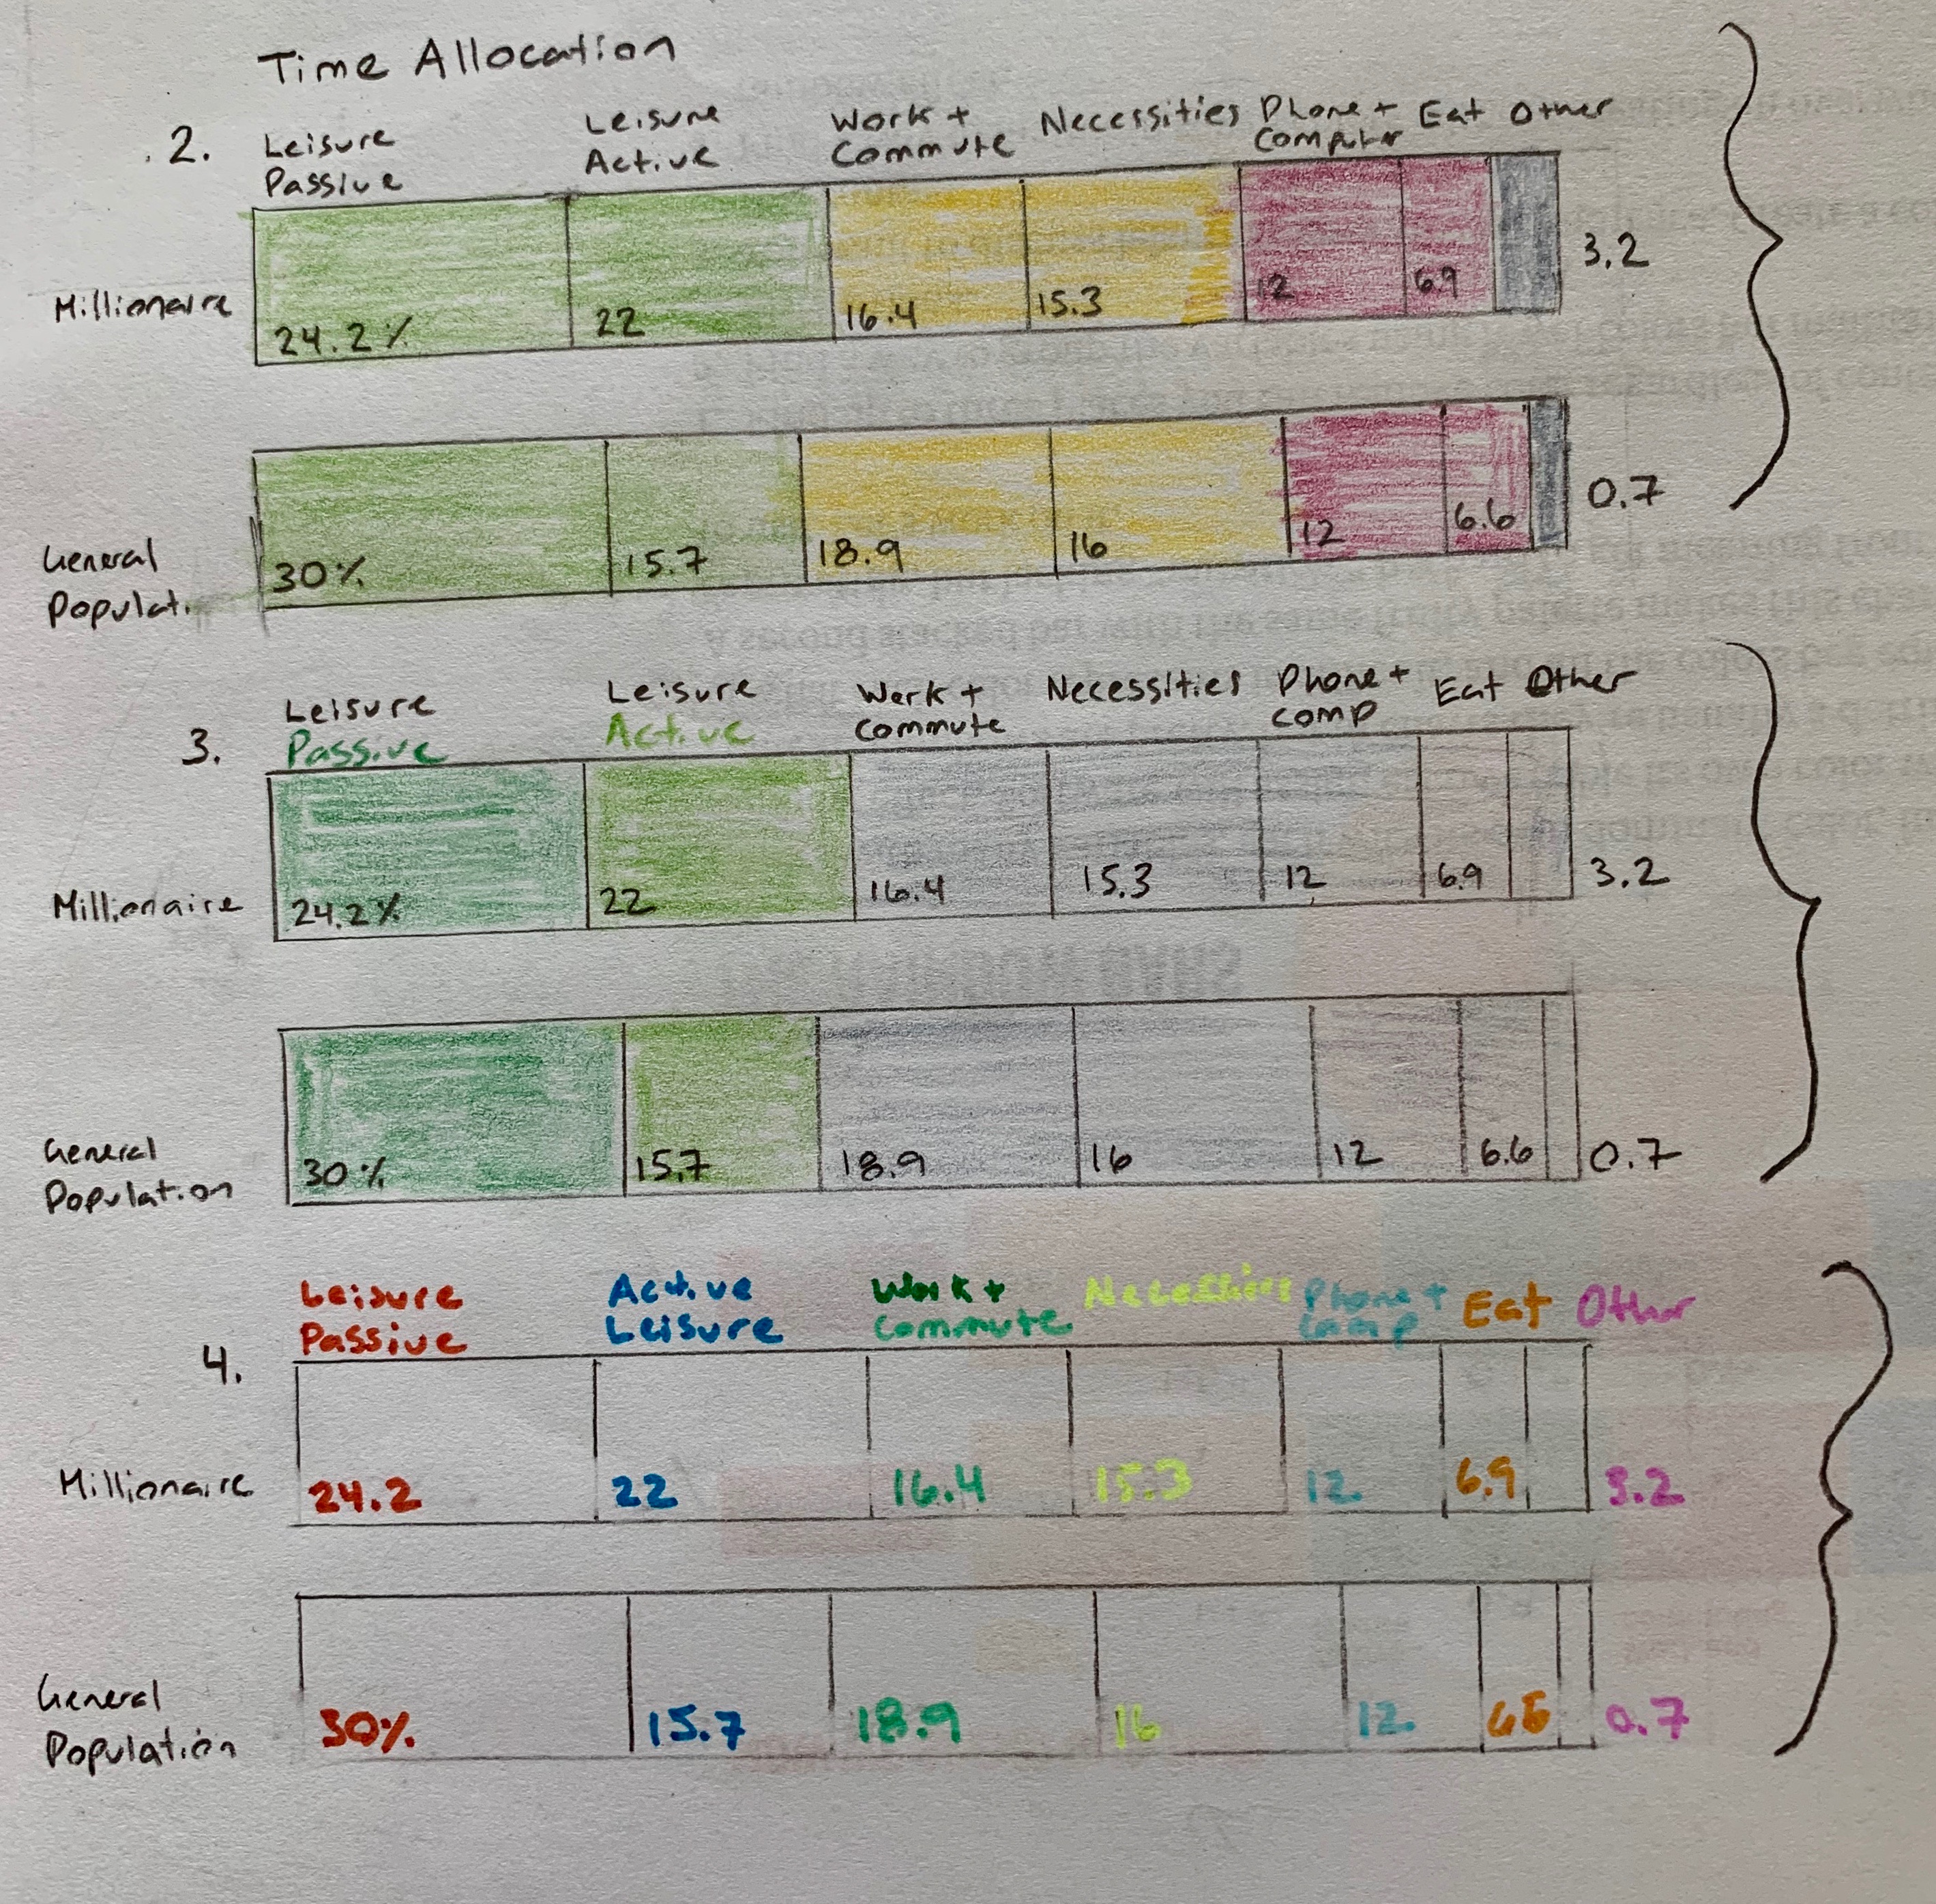 Time Allocation
2.
Leisure
Passive
Leisure
Active
Work +
Commute
Necessities
Phone +
Computer
Eat
Other
Millionaire
24.2%
22
16.4
15.3
12
6.9
3.2
General
Populat.
30%
15.7
18.9
16
12
6.6
0.7
3.
Leisure
Passive
Leisure
Active
Work +
commute
Necessities
Phone +
comp
Eat
Other
Millionaire
24.2%
22
16.4
15.3
12
6.9
3.2
General
Population
30%
15.7
18.9
16
12
6.6
0.7
4.
Leisure
Passive
Active
Leisure
Work +
Commute
Phone +
comp
Eat
Other
Millionaire
24.2
22
16.4
15.3
12.
6.9
3.2
General
Population
30%
15.7
18.9
16
12.
0.7